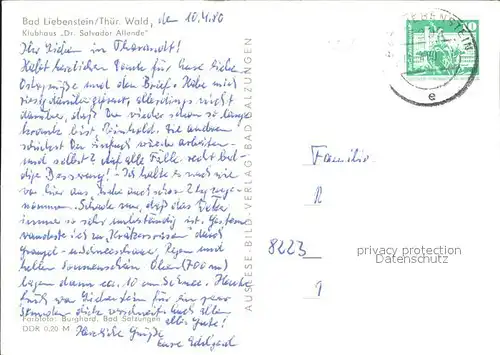 Bad Liebenstein/Thür. Wald, den 10.4.80
Klubhaus "Dr. Salvador Allende"
Ihr Lieben in Tharandt!
Habt herzlichen Dank für Eure lieben
Ostergrüße und den Brief. Habe mich
riesig darüber gefreut, allerdings nicht
darüber, daß Du wieder schon so lange
krank bist, Reinhold. Die anderen
und selbst? Auf alle Fälle recht bal-
dige Besserung! Ich hatte es auch
von hier aus
nommen. Schade nur, daß das Wetter
immer so sehr unbeständig ist. Gestern
wanderte ich zu durch
Graupel- u. Schneeschauer, Regen und
hellen Sonnenschein. Oben (700 m)
lagen dann ca. 10 cm Schnee. Heute
früh war Liebenstein für ein paar
Stunden dick verschneit. Euch allen
alles Gute!
Herzliche Grüße
Eure Edelgard
Farbfoto: Burghard, Bad Salzungen
DDR 0,20 M
AUSLESE-BILD-VERLAG·BAD SALZUNGEN
LIEBENSTEIN
e
10
Familie
R
8223
9
privacy protection
Datenschutz